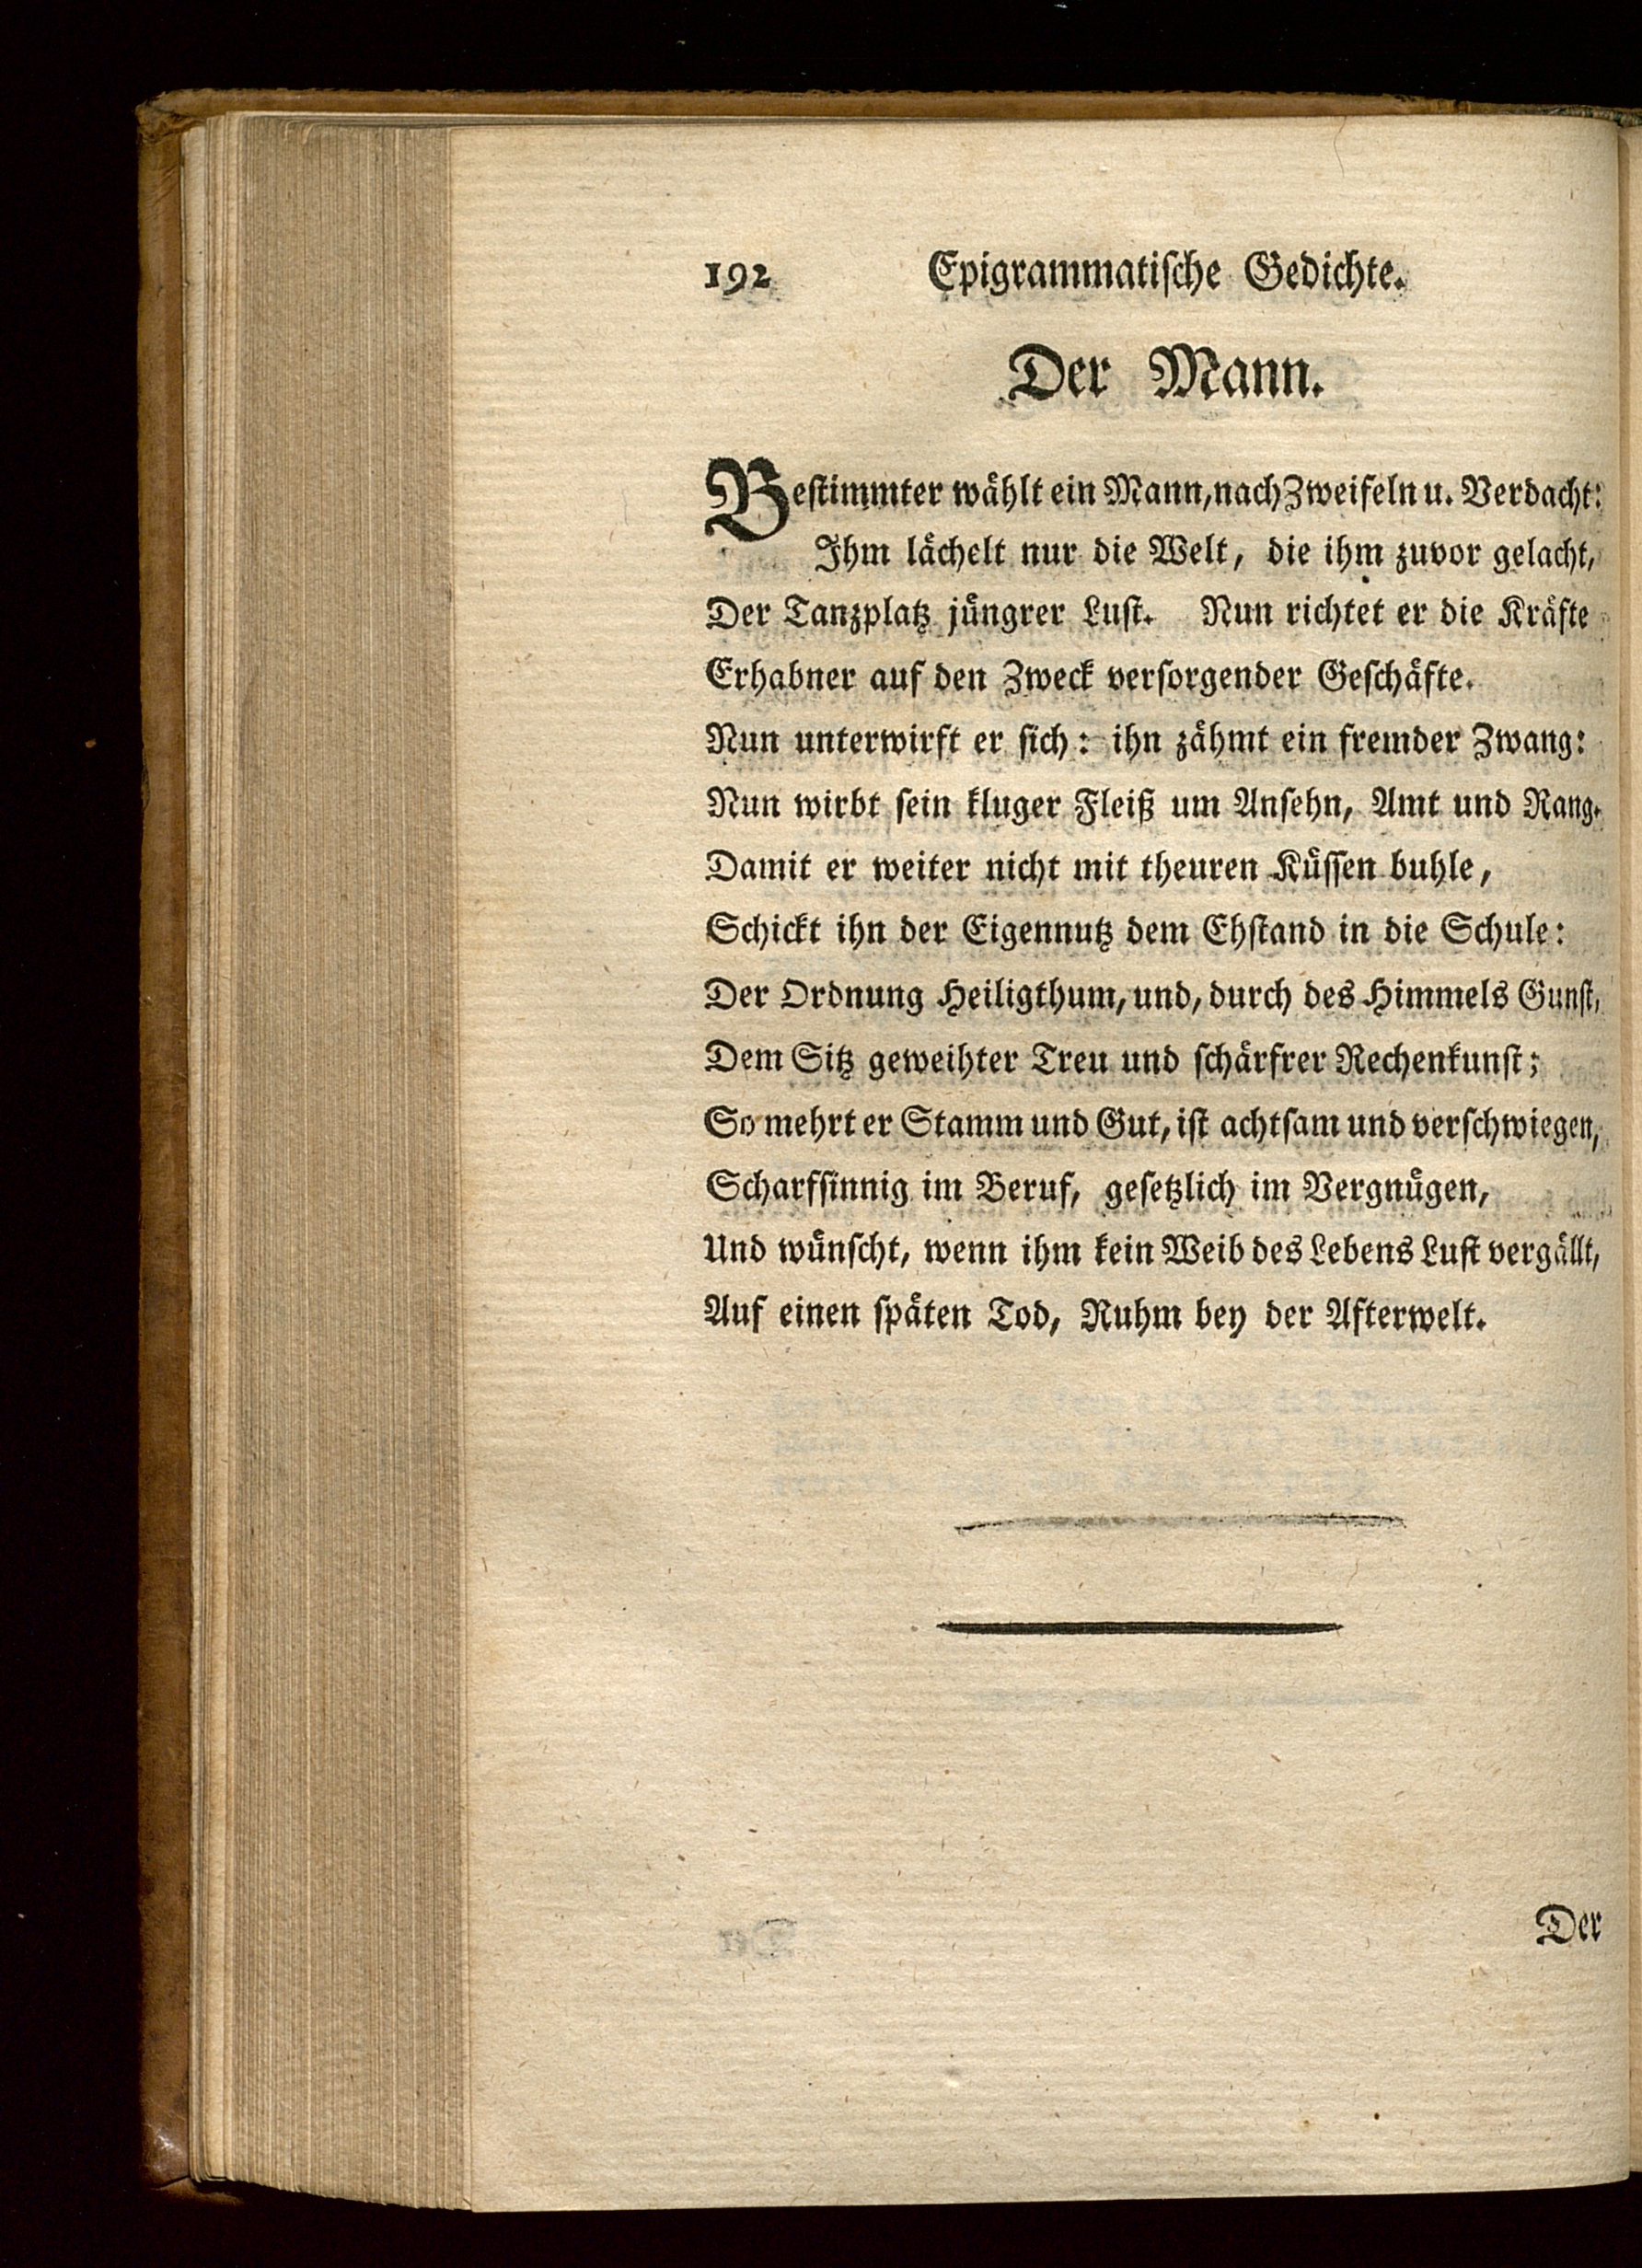 192 Epigrammatische Gedichte.
Der Mann.
Bestimmter wählt ein Mann, nach Zweifeln u. Verdacht:
Ihm lächelt nur die Welt, die ihm zuvor gelacht,
Der Tanzplatz jüngrer Lust. Nun richtet er die Kräfte
Erhabner auf den Zweck versorgender Geschäfte.
Nun unterwirft er sich: ihn zähmt ein fremder Zwang:
Nun wirbt sein kluger Fleiß um Ansehn, Amt und Rang.
Damit er weiter nicht mit theuren Küssen buhle,
Schickt ihn der Eigennutz dem Ehstand in die Schule:
Der Ordnung Heiligthum, und, durch des Himmels Gunst,
Dem Sitz geweihter Treu und schärfrer Rechenkunst;
So mehrt er Stamm und Gut, ist achtsam und verschwiegen,
Scharfsinnig im Beruf, gesetzlich im Vergnügen,
Und wünscht, wenn ihm kein Weib des Lebens Lust vergällt,
Auf einen späten Tod, Ruhm bey der Afterwelt.
Der